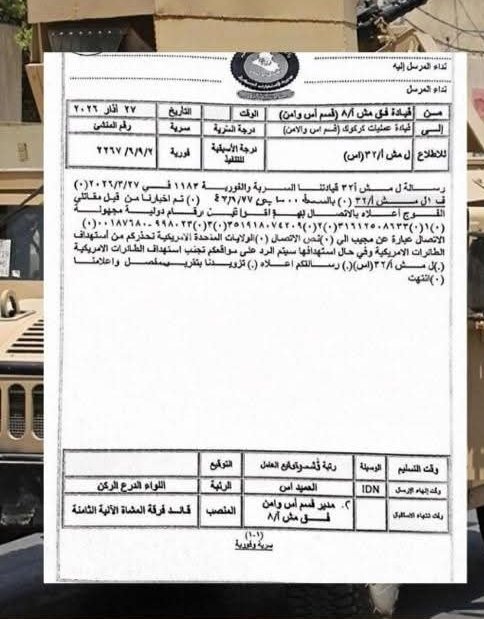 نداء المرسل إليه
نداء المرسل
مــن قيادة فق مش أ/٨ (قسم أس وامن) الوقت التأريخ ٢٧ آذار ٢٠٢٦
إلــى قيادة عمليات كركوك (قسم أس والامن) درجة السرية سرية رقم المنشئ
للاطلاع ل مش أ/٣٢(اس) درجة الأسبقية للتنفيذ فورية ٢٢٦٧/٦/٩/٢
رسالة ل مش أ٣٢ قيادتنا السرية والفورية ١١٨٣ في ٢٠٢٦/٣/٢٧(٠)
ف ال مش أ/٣٢ (٠) بالساعة (٠) تم اخبارنا من قبل مقاتلي
الفوج أعلاه بالاتصال بهم ارقام دولية مجهولة
الاتصال عبارة عن مجيب الي (٠)نص الاتصال (٠)الولايات المتحدة الامريكية تحذركم من أستهداف
الطائرات الامريكية وفي حال استهدافها سيتم الرد على مواقعكم تجنب استهداف الطائرات الامريكية
(٠)ل مش أ/٣٢(اس)(٠) رسالتكم اعلاه (٠) تزويدنا بتقرير مفصل واعلامنا
(٠)انتهت
وقت التسليم الوسيلة رتبة وأسم وتوقيع العامل التوقيع
وقت إنهاء الإرسال IDN العميد اس الرتبة اللواء الدرع الركن
وقت انتهاء الاستقبال ٢. مدير قسم أس وامن فق مش أ/٨ المنصب قائد فرقة المشاة الآلية الثامنة
(١-١)
سرية وفورية